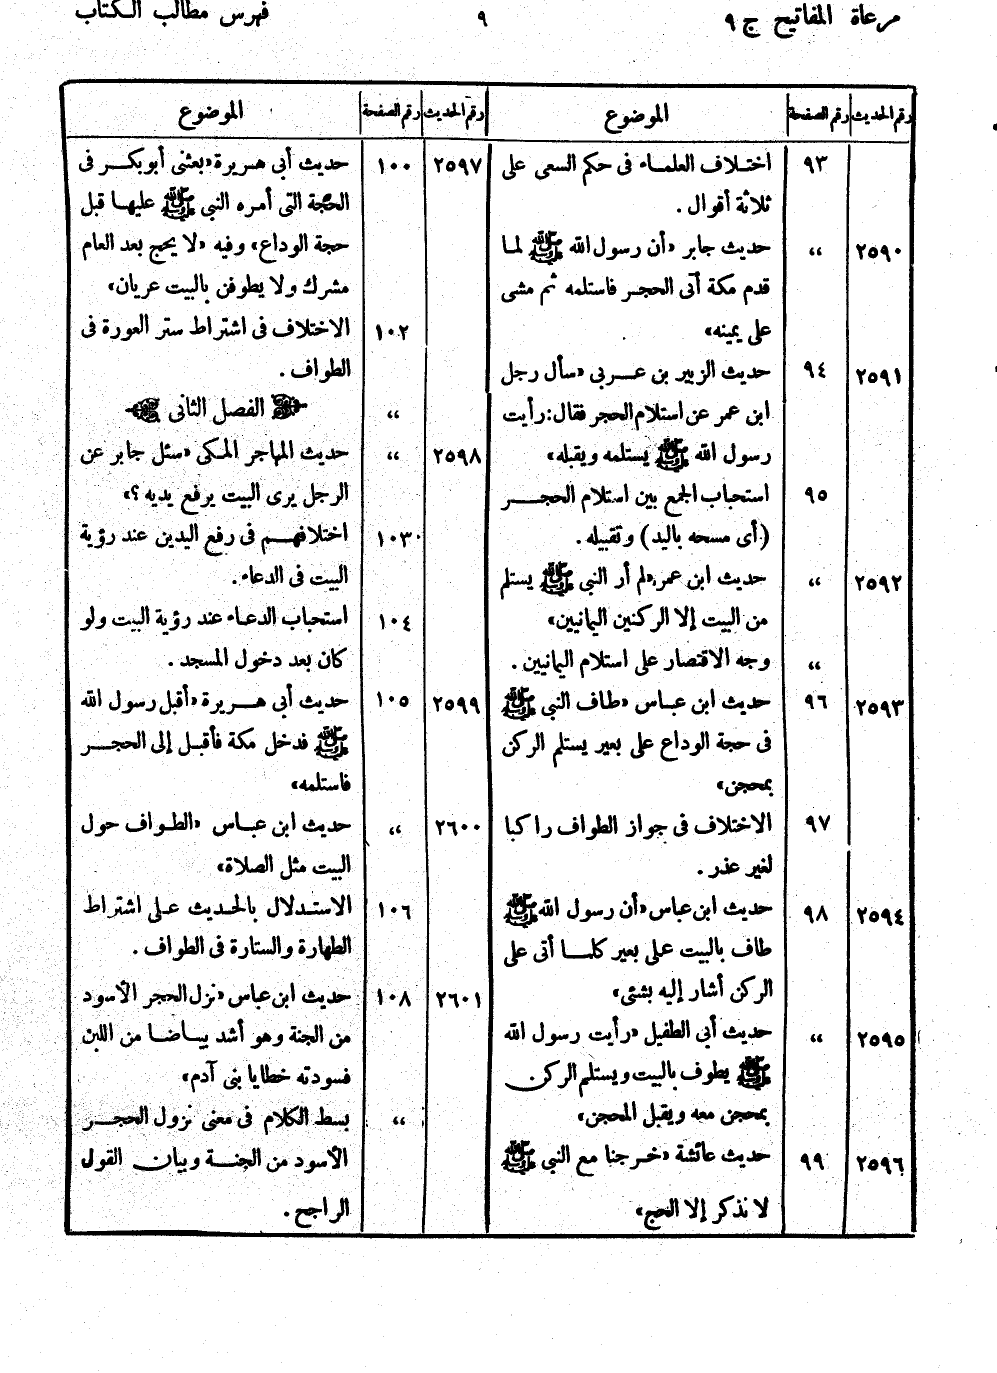 مرعاة المفاتيح ج ٩
٩
فهرس مطالب الكتاب
رقم الحديث رقم الصفحة الموضوع
٩٣ اختلاف العلماء فى حكم السعى على
ثلاثة أقوال .
٢٥٩٠ ،، حديث جابر «أن رسول الله ﷺ لما
قدم مكة أتى الحجر فاستلمه ثم مشى
على يمينه»
٢٥٩١ ٩٤ حديث الزبير بن عربى «سأل رجل
ابن عمر عن استلام الحجر فقال: رأيت
رسول الله ﷺ يستلمه ويقبله»
٩٥ استحباب الجمع بين استلام الحجر
(أى مسحه باليد) وتقبيله .
٢٥٩٢ ،، حديث ابن عمر «لم أر النبي ﷺ يستلم
من البيت إلا الركنين اليمانيين»
،، وجه الاقتصار على استلام اليمانيين .
٢٥٩٣ ٩٦ حديث ابن عباس «طاف النبى ﷺ
فى حجة الوداع على بعير يستلم الركن
بمحجن»
٩٧ الاختلاف فى جواز الطواف راكبا
لغير عذر .
٢٥٩٤ ٩٨ حديث ابن عباس «أن رسول الله ﷺ
طاف بالبيت على بعير كلما أتى على
الركن أشار إليه بشئى»
٢٥٩٥ ،، حديث أبى الطفيل «رأيت رسول الله
ﷺ يطوف بالبيت ويستلم الركن
بمحجن معه ويقبل المحجن»
٢٥٩٦ ٩٩ حديث عائشة «خرجنا مع النبى ﷺ
لا نذكر إلا الحج»
رقم الحديث رقم الصفحة الموضوع
٢٥٩٧ ١٠٠ حديث أبى هريرة «بعثنى أبوبكر فى
الحجة التى أمره النبى ﷺ عليها قبل
حجة الوداع» وفيه «لا يحج بعد العام
مشرك ولا يطوفن بالبيت عريان»
١٠٢ الاختلاف فى اشتراط ستر العورة فى
الطواف .
،، الفصل الثانى
٢٥٩٨ ،، حديث المهاجر المكى «سئل جابر عن
الرجل يرى البيت يرفع يديه ؟»
١٠٣ اختلافهم فى رفع اليدين عند رؤية
البيت فى الدعاء .
١٠٤ استحباب الدعاء عند رؤية البيت ولو
كان بعد دخول المسجد .
٢٥٩٩ ١٠٥ حديث أبى هريرة «أقبل رسول الله
ﷺ فدخل مكة فأقبل إلى الحجر
فاستلمه»
٢٦٠٠ ،، حديث ابن عباس «الطواف حول
البيت مثل الصلاة»
١٠٦ الاستدلال بالحديث على اشتراط
الطهارة والستارة فى الطواف .
٢٦٠١ ١٠٨ حديث ابن عباس «نزل الحجر الأسود
من الجنة وهو أشد بياضا من اللبن
فسودته خطايا بنى آدم»
،، بسط الكلام فى معنى نزول الحجر
الأسود من الجنة وبيان القول
الراجح .